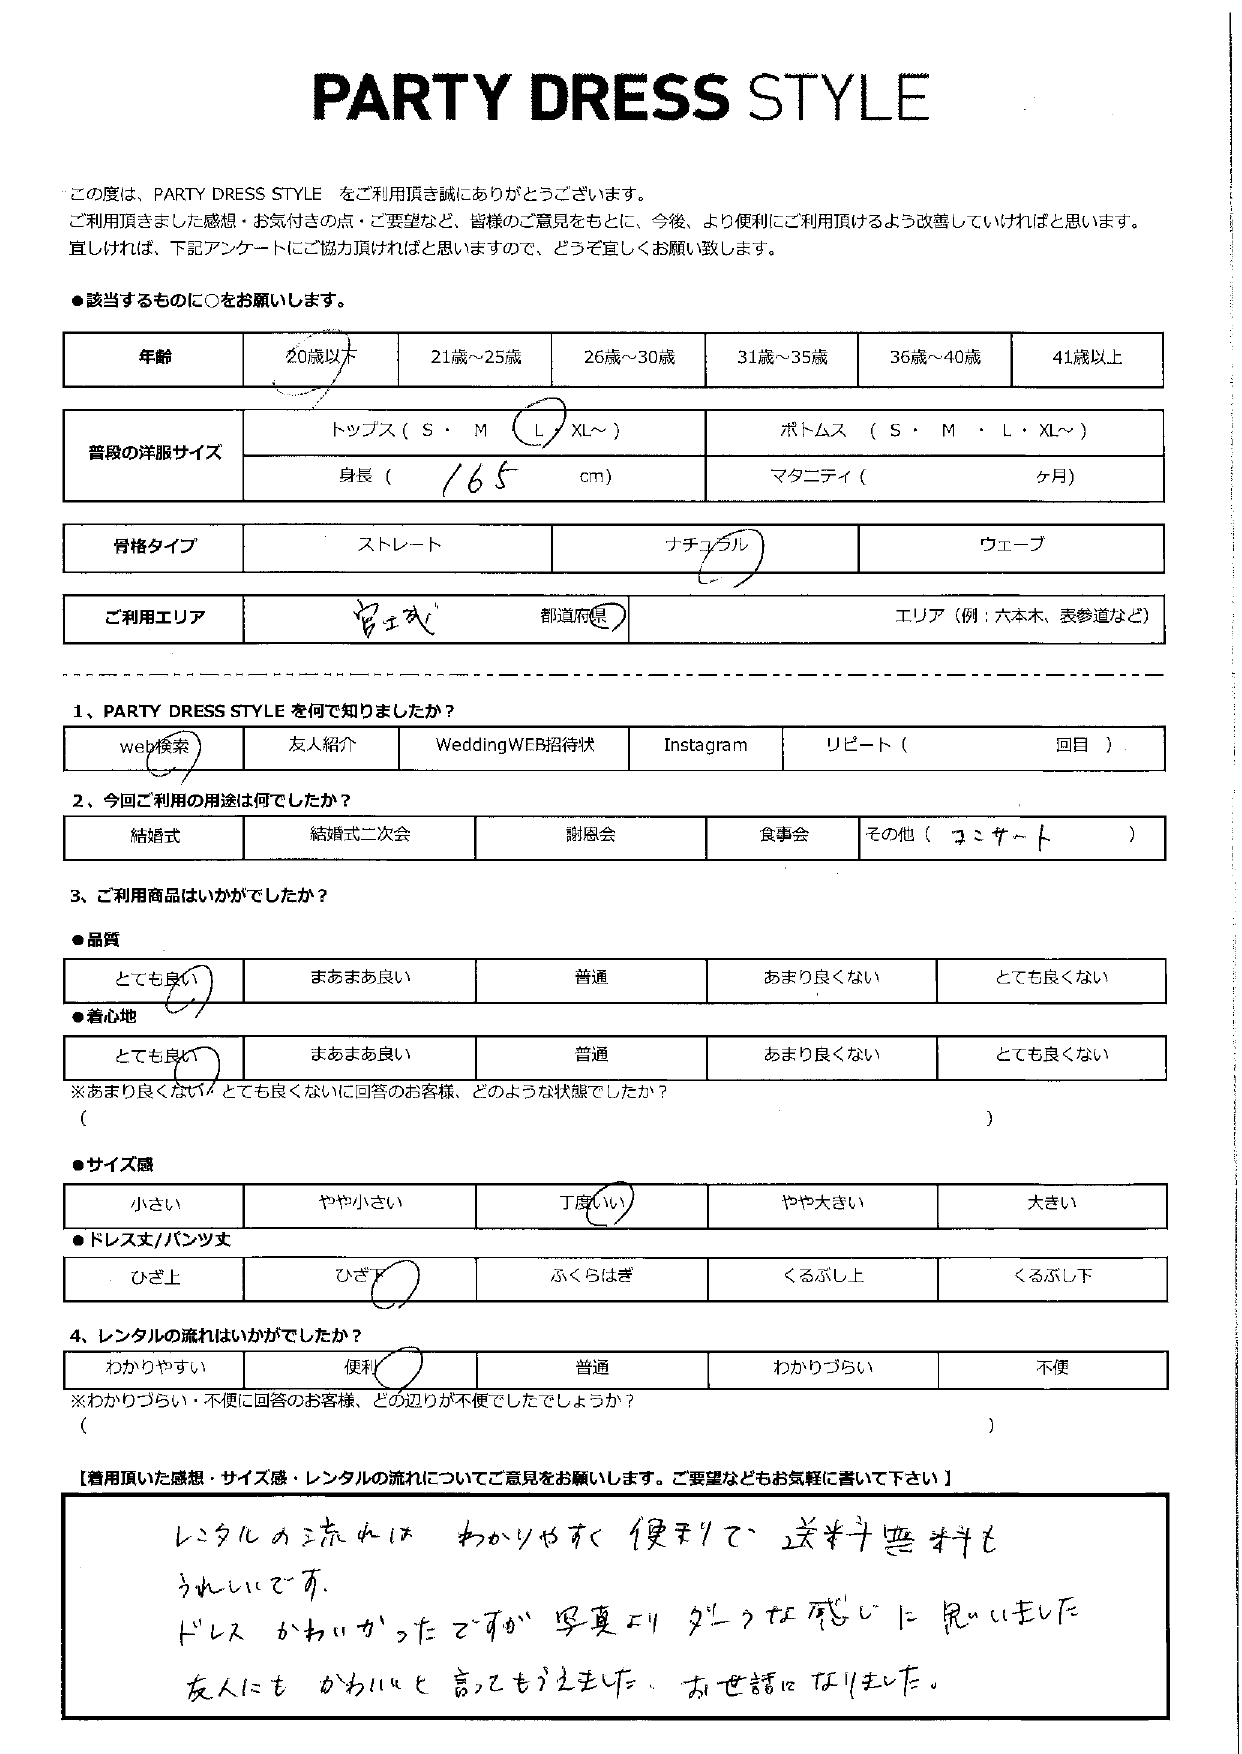 PARTY DRESS STYLE
この度は、PARTY DRESS STYLE をご利用頂き誠にありがとうございます。
ご利用頂きました感想・お気付きの点・ご要望など、皆様のご意見をもとに、今後、より便利にご利用頂けるよう改善していければと思います。
宜しければ、下記アンケートにご協力頂ければと思いますので、どうぞ宜しくお願い致します。
●該当するものに○をお願いします。
年齢 20歳以下 21歳～25歳 26歳～30歳 31歳～35歳 36歳～40歳 41歳以上
普段の洋服サイズ トップス ( S ・ M L ・ XL～ ) ボトムス ( S ・ M ・ L ・ XL～ )
身長 ( 165 cm) マタニティ ( ヶ月)
骨格タイプ ストレート ナチュラル ウェーブ
ご利用エリア 宮城 都道府県 エリア（例：六本木、表参道など）
1、PARTY DRESS STYLE を何で知りましたか？
web検索 友人紹介 WeddingWEB招待状 Instagram リピート ( 回目 )
2、今回ご利用の用途は何でしたか？
結婚式 結婚式二次会 謝恩会 食事会 その他 ( コンサート )
3、ご利用商品はいかがでしたか？
●品質
とても良い まあまあ良い 普通 あまり良くない とても良くない
●着心地
とても良い まあまあ良い 普通 あまり良くない とても良くない
※あまり良くない・とても良くないに回答のお客様、どのような状態でしたか？
( )
●サイズ感
小さい やや小さい 丁度いい やや大きい 大きい
●ドレス丈/パンツ丈
ひざ上 ひざ下 ふくらはぎ くるぶし上 くるぶし下
4、レンタルの流れはいかがでしたか？
わかりやすい 便利 普通 わかりづらい 不便
※わかりづらい・不便に回答のお客様、どの辺りが不便でしたでしょうか？
( )
【着用頂いた感想・サイズ感・レンタルの流れについてご意見をお願いします。ご要望などもお気軽に書いて下さい 】
レンタルの流れは わかりやすく 便利で 送料無料も
うれしいです.
ドレス かわいかったですが 写真より ダークな感じに 思いました
友人にも かわいいと 言ってもらえました。 お世話になりました。